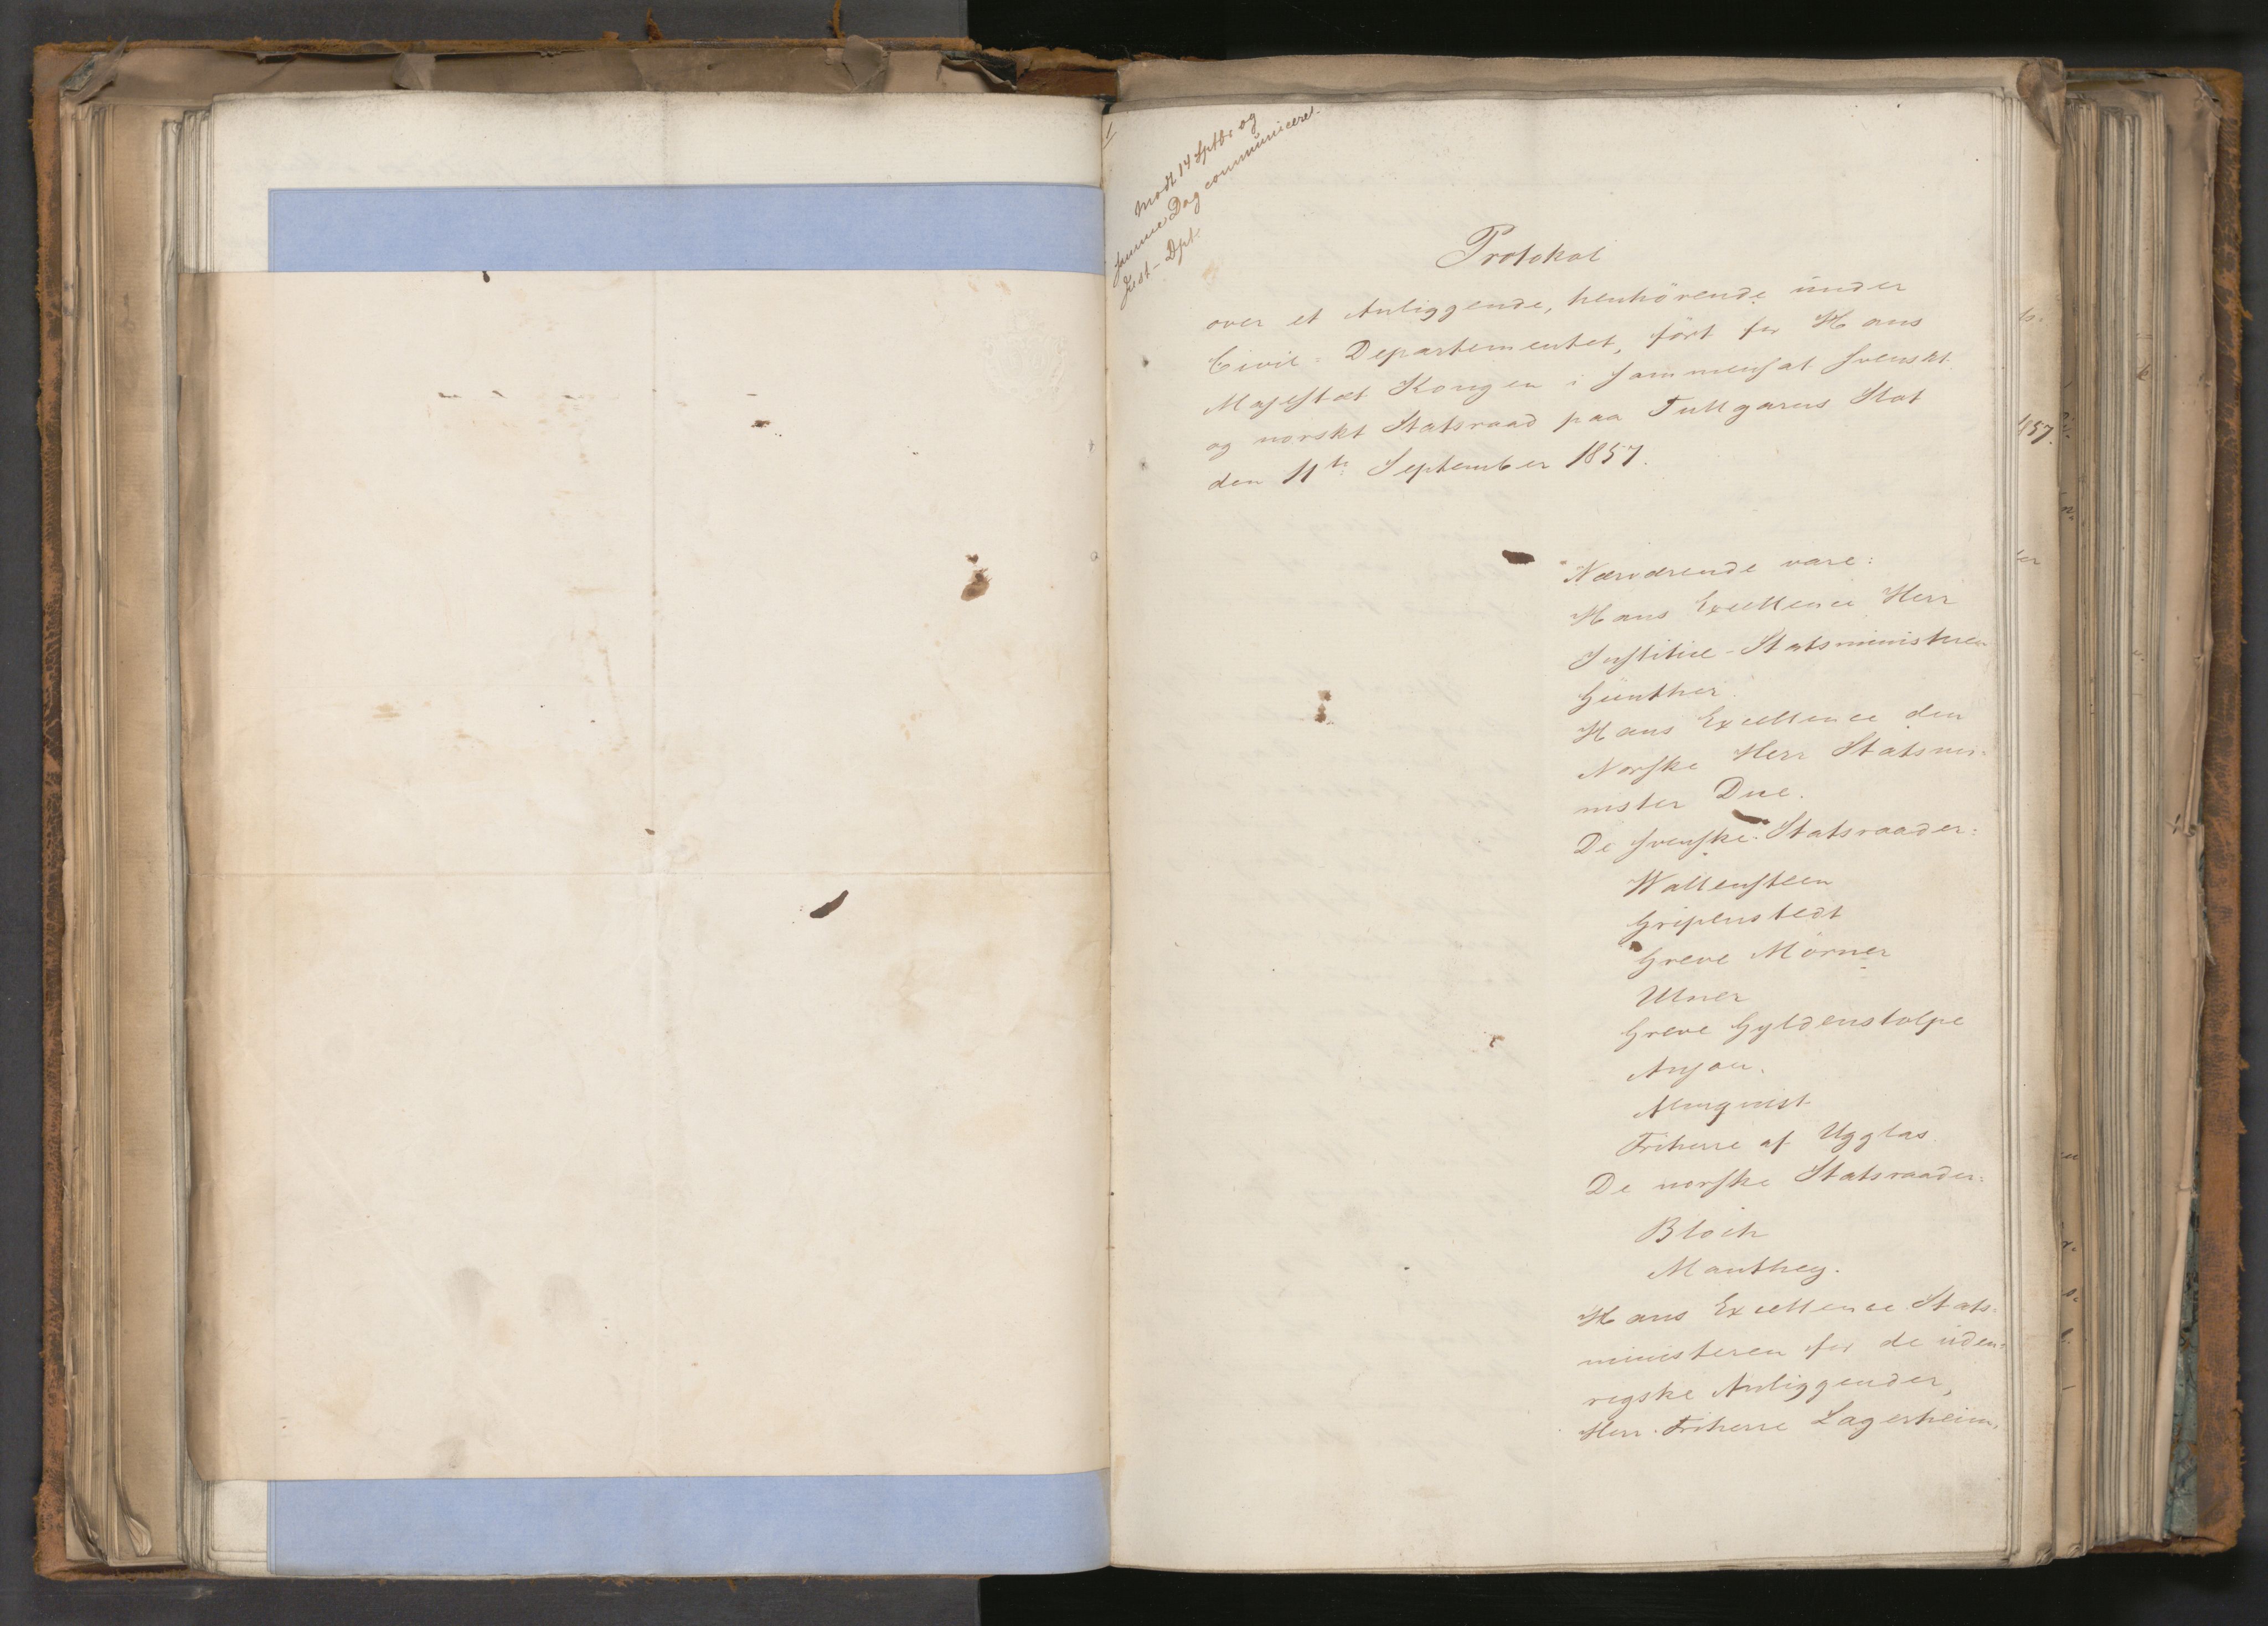 1
Modt 14 Sptbr og
samme Dag communiceret
Just-Dpt.
Protokol
over et Anliggende, henhörende under
Civil-Departementet, fört for Hans
Majestæt Kongen i sammensat svenskt
og norskt Statsraad paa Tullgarns Slot
den 11te September 1857.
Nærværende vare:
Hans Excellence Herr
Justitie-Statsministeren
Günther.
Hans Excellence den
Norske Herr Statsmi-
nister Due.
De svenske Statsraader:
Wallensteen
Gripenstedt
Greve Mörner
Ulner
Greve Gyldenstolpe
Anjou.
Almqvist
Friherre af Ugglas
De norske Statsraader:
Bloch
Manthey.
Hans Excellence Stats-
ministeren for de uden-
rigske Anliggender,
Herr Friherre Lagerheim.